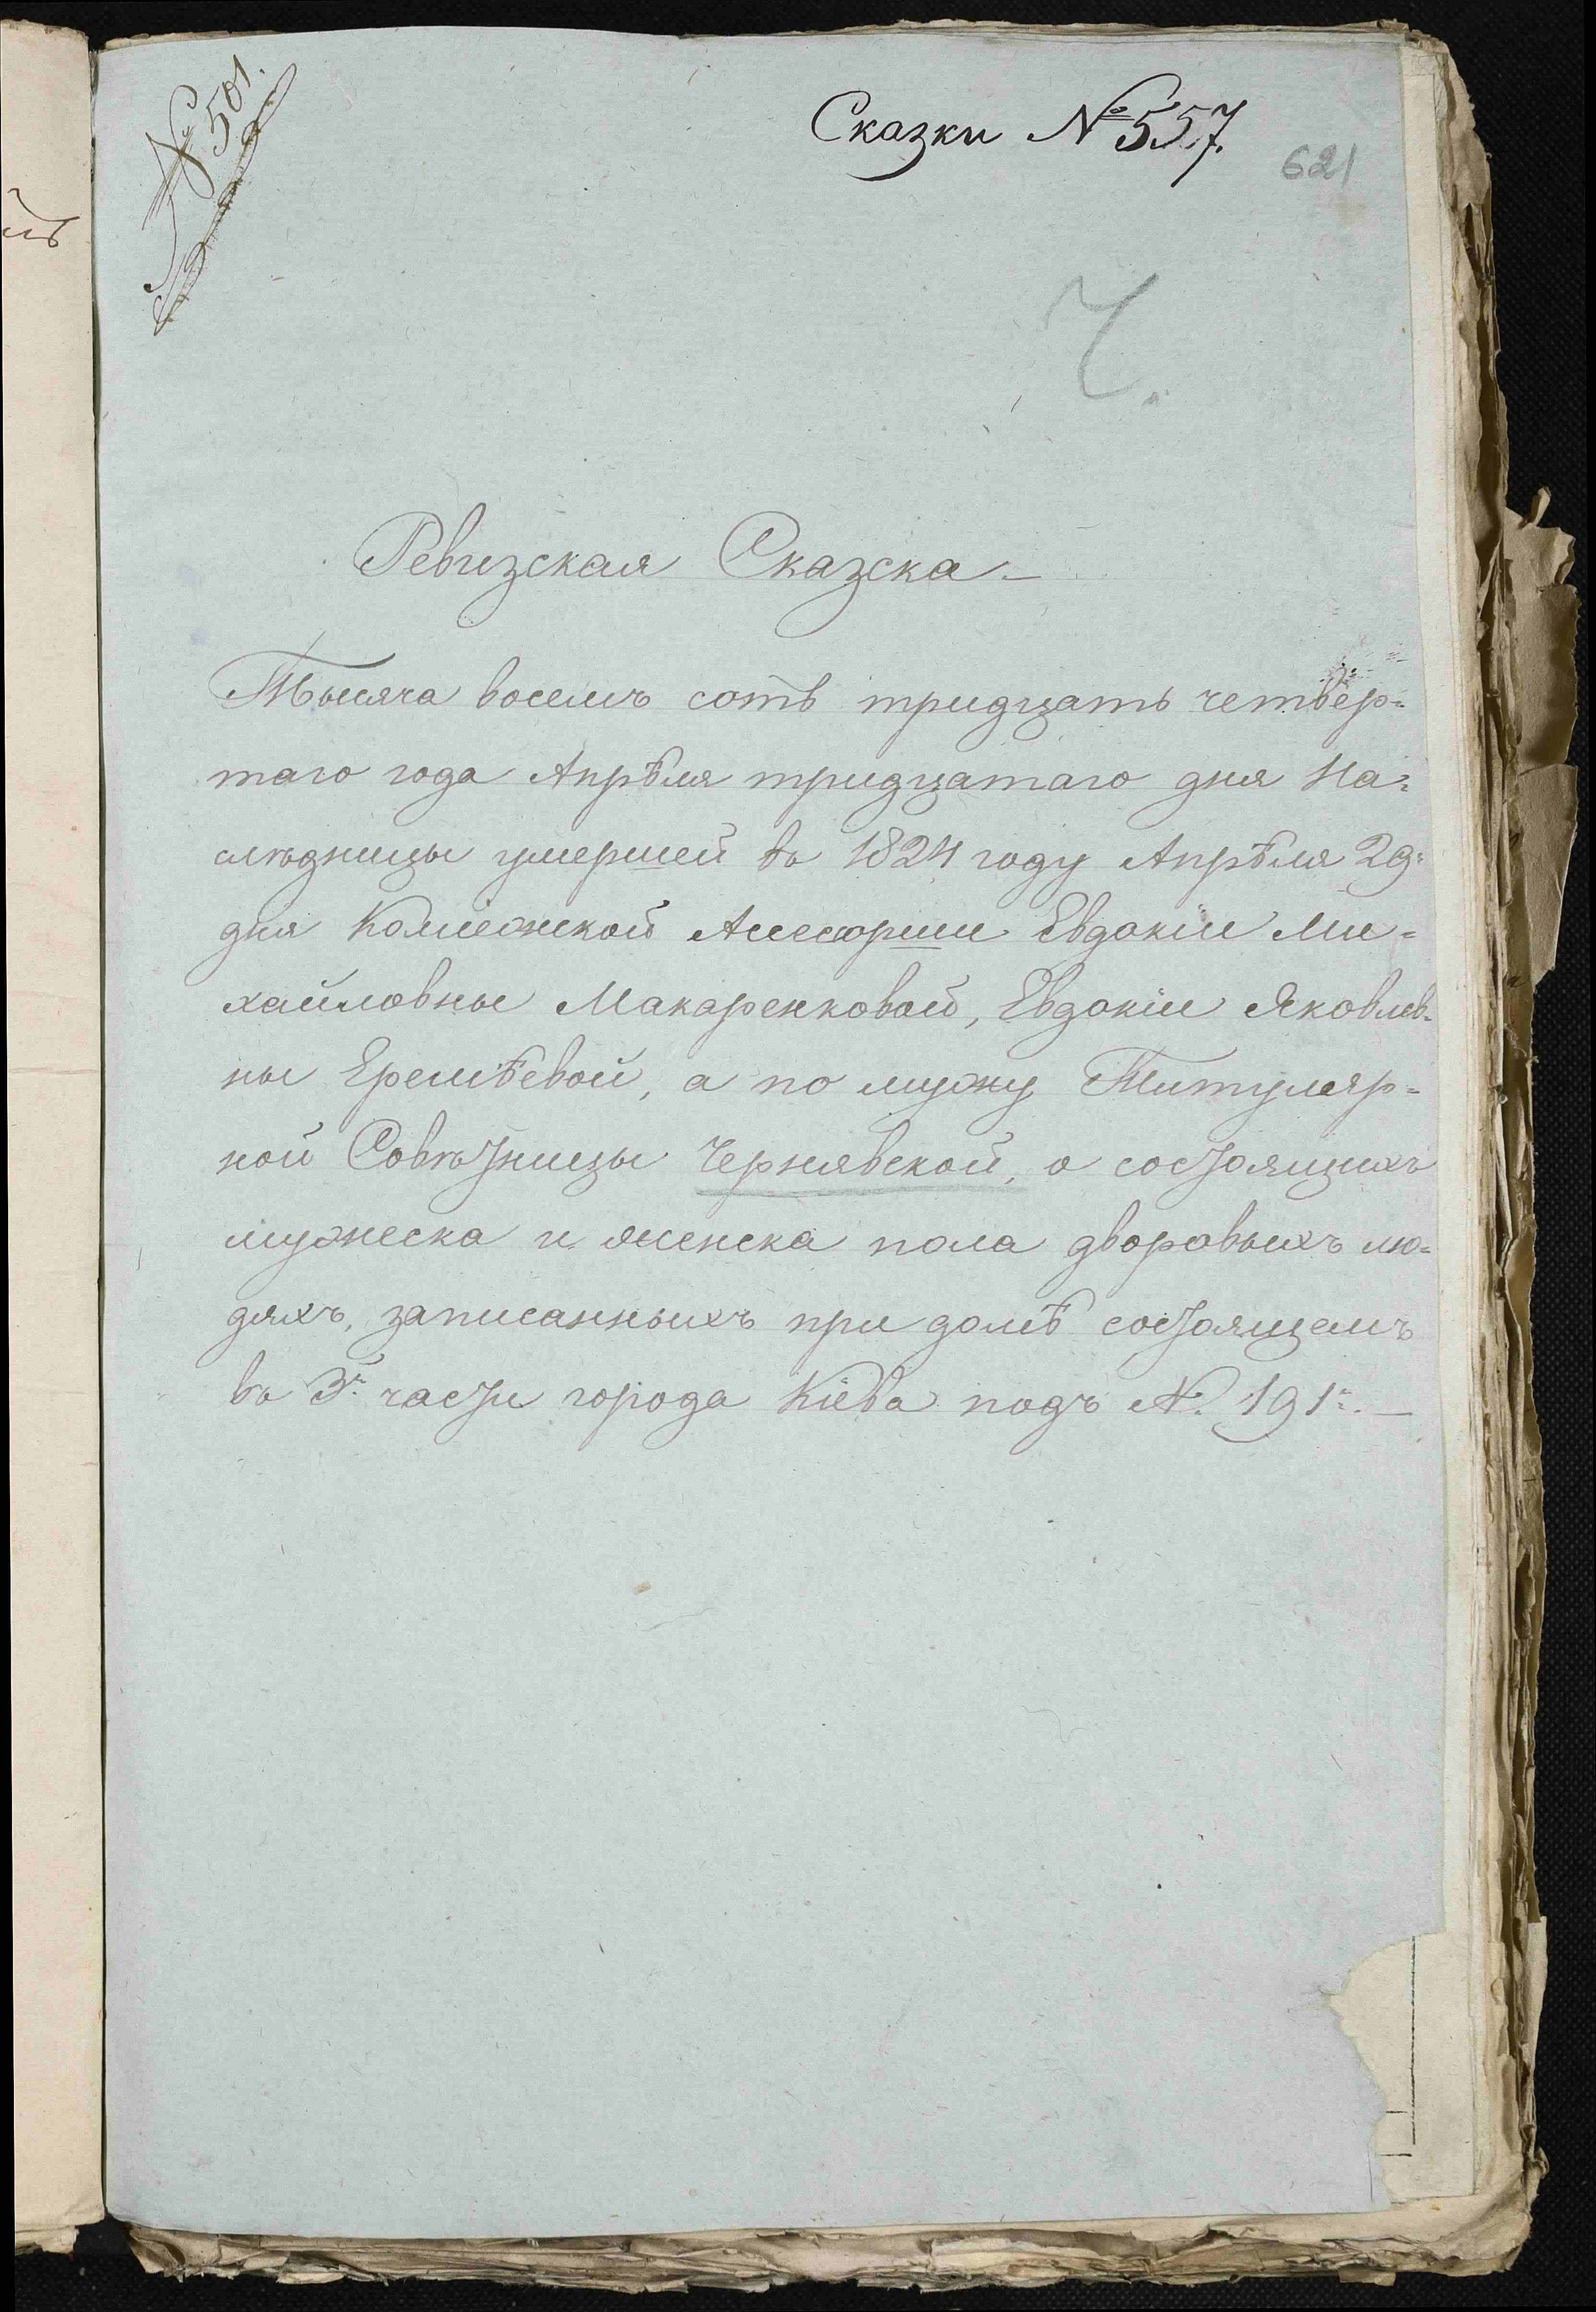 № 501.
Сказки № 557.
621
Ч.
Ревизская Сказска —
Тысяча восемъ сотъ тридцать четвер=
таго года Апрѣля тридцатаго дня На=
слѣдницы умершей въ 1824 году Апрѣля 29=
дня Колежской Ассесорши Евдокіи Ми=
хайловны Макаренковой, Евдокіи Яковлев=
ны Еремѣевой, а по мужу Титуляр=
ной Совѣтницы Чернявской, о состоящихъ
мужеска и женска пола дворовыхъ лю=
дяхъ, записанныхъ при домѣ состоящемъ
въ 3й части города Кіева подъ №. 191м. —